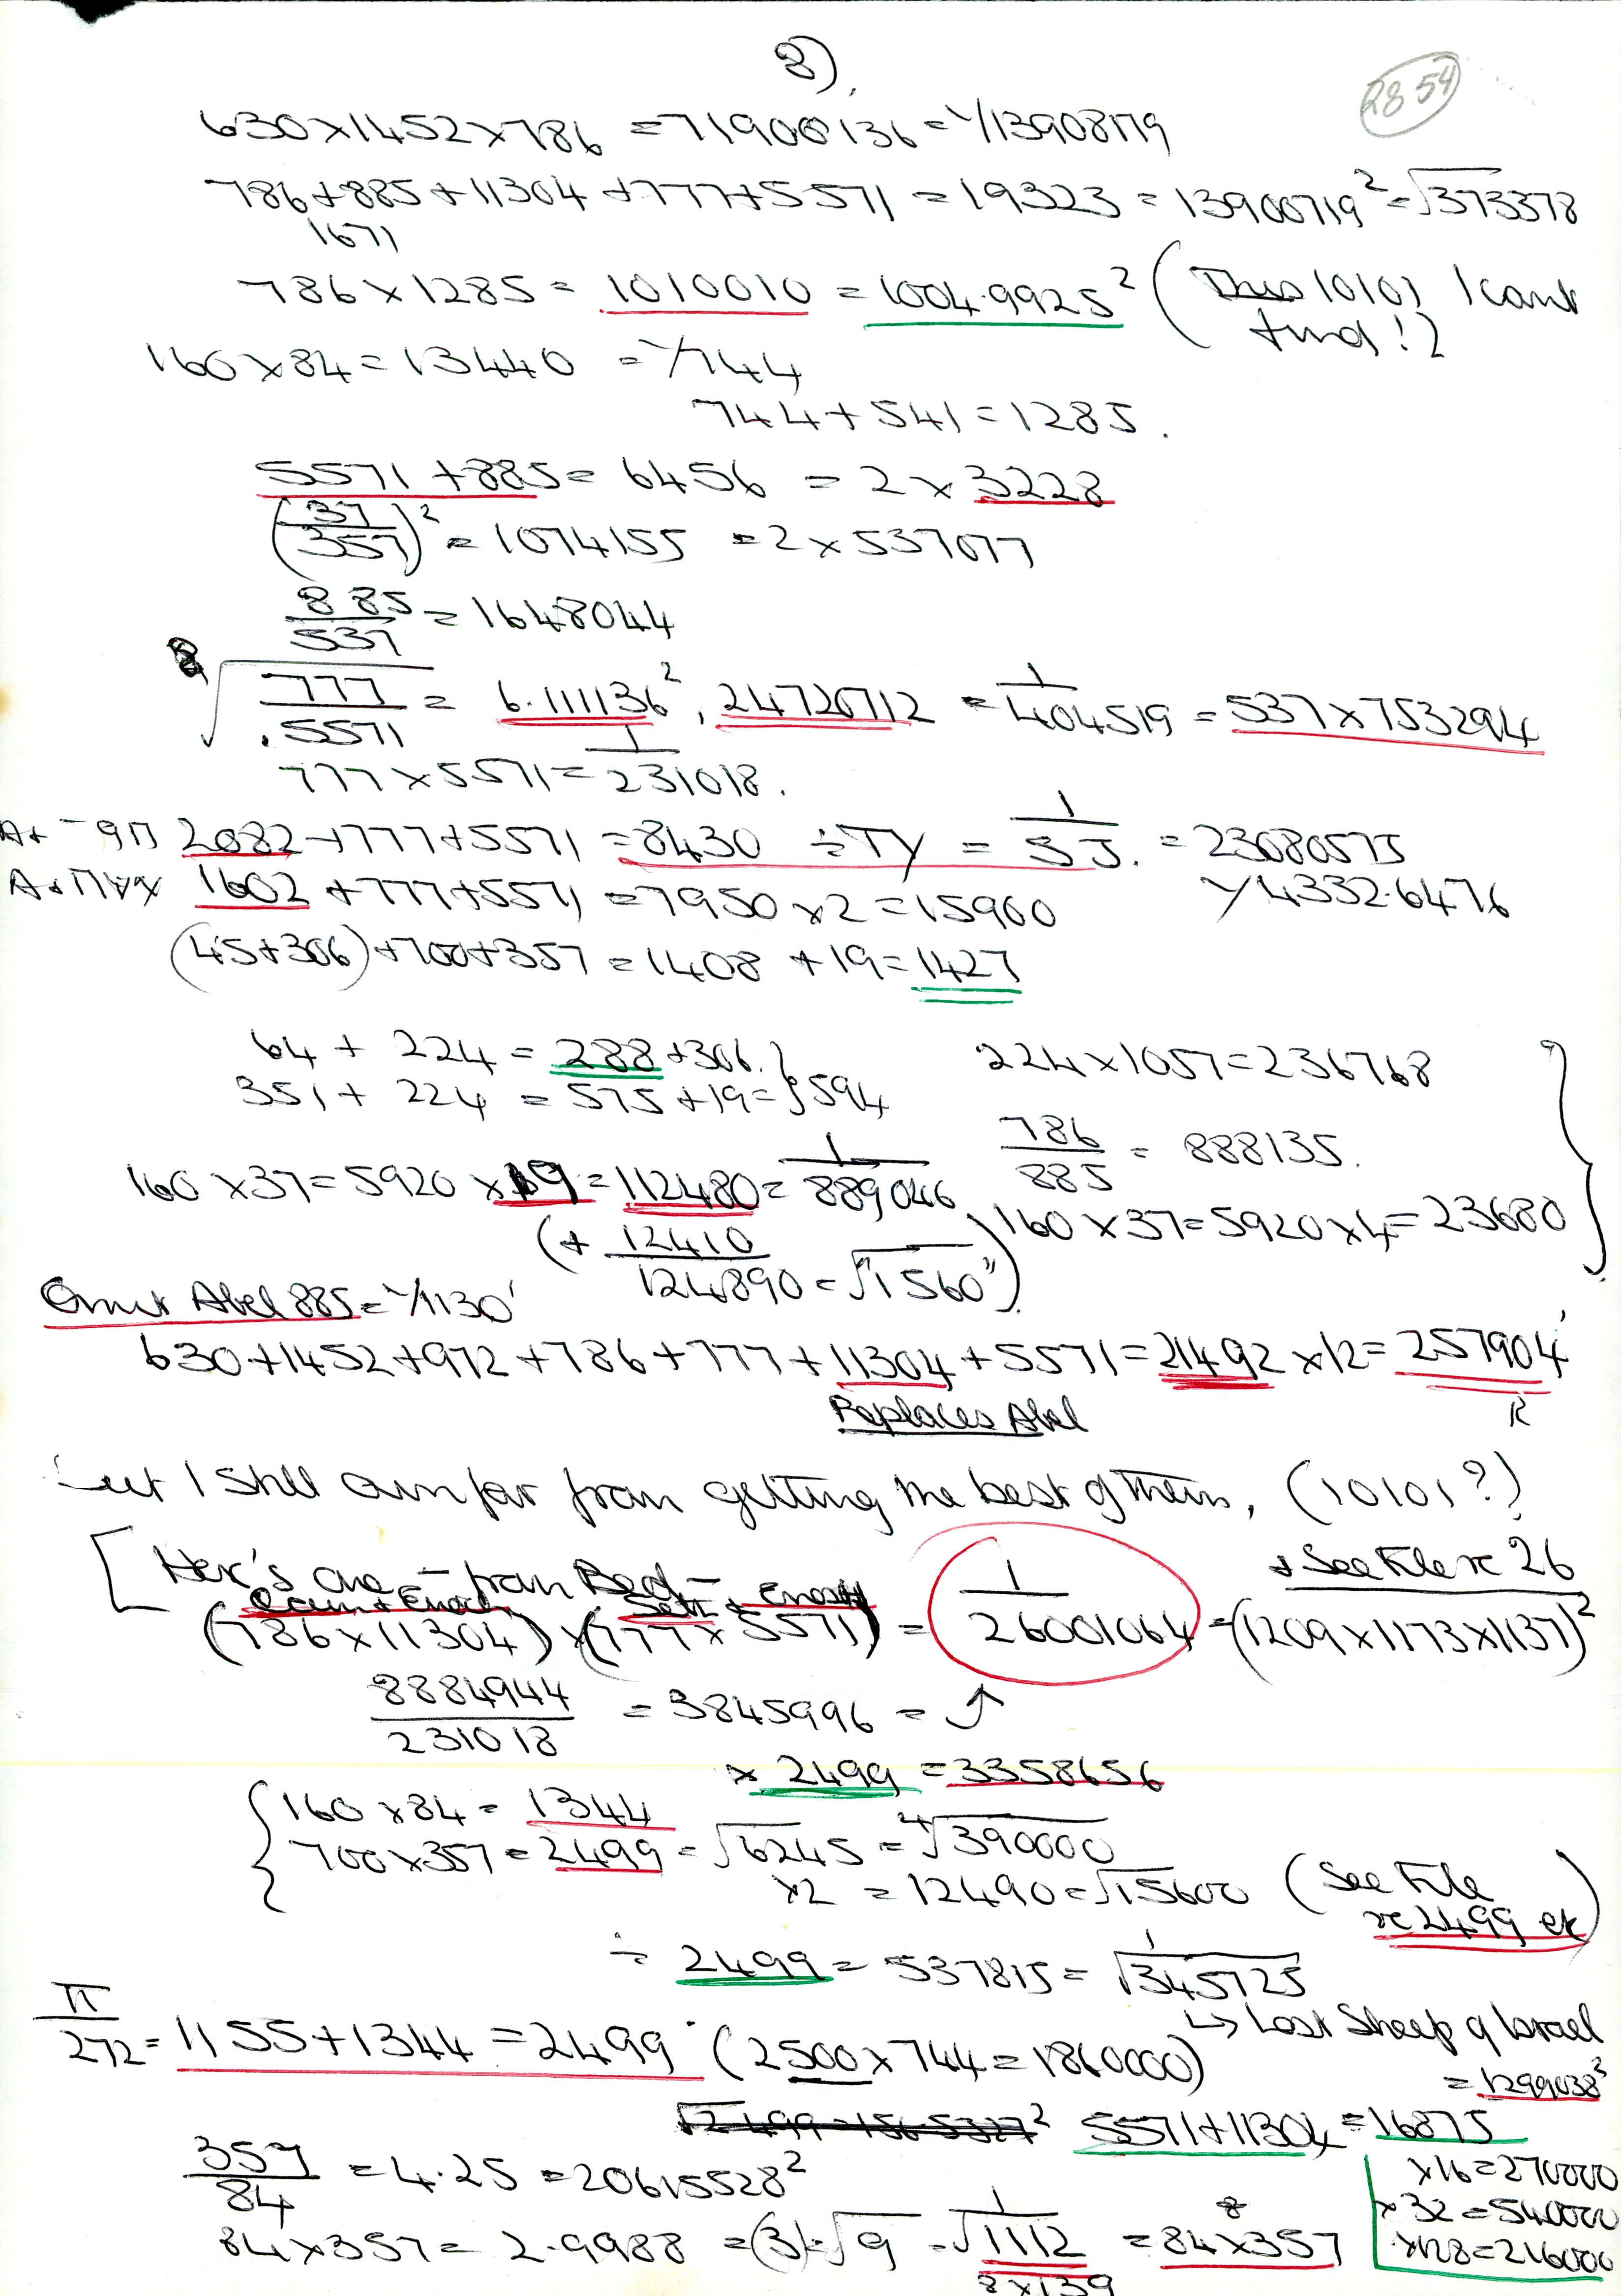 8)
2854
630×1452×786 = 71900136 = 1/13908179
786+885+11304+777+5571 = 19323 = 13900719² = √373378
1671
786×1285 = 1010010 = 1004.9925² (This 10101 I cant find!)
160×84 = 13440 = 1/744
744+541 = 1285.
5571+885 = 6456 = 2×3228
(37/357)² = 1074155 = 2×537077
885/537 = 1648044
⁸√777/.5571 = 6.111136², 24720712 = 1/404519 = 537×753294
777×5571 = 1/231018.
2082+777+5571 = 8430 ÷TY = 1/SJ. = 23080575
1602+777+5571 = 7950×2 = 15900 1/4332.6476
(45+306)+700+357 = 1408 +19 = 1427
64 + 224 = 288+306. } 594 224×1057=236768
351 + 224 = 575+19=
786/885 = 888135.
160×37=5920×19=112480=1/889046 160×37=5920×4=23680
(+ 12410
124890 = √"1560")
Omit Abel 885 = 1/1130'
630+1452+972+786+777+11304+5571=21492×12=257904'
Replaces Abel R
but I still am far from getting the best of them, (10101?)
[Here's one – from Red – + See File re 26
Enoch Seth + Enosh
(786×11304)×(777×5571) = 1/26001064 = (1209×1173×1137)²
8884944/231018 = 3845996 = ↑
× 2499 = 3358656
{160×84 = 1344
700×357 = 2499 = √6245 = ⁴√390000
×2 = 12490 = √15600 (See File re 2499 etc)
÷ 2499 = 537815 = 1/√345725
↳ Lost Sheep of Israel
π/272 = 1155+1344 = 2499. (2500×744=1860000)
= 1299038²
5571+11304 = 16875
357/84 = 4.25 = 20615528² ×16=270000
×32=540000
84×357 = 2.9988 = (3) = √9 = 1/√1112 = 84×357 ×128=216000
8×139